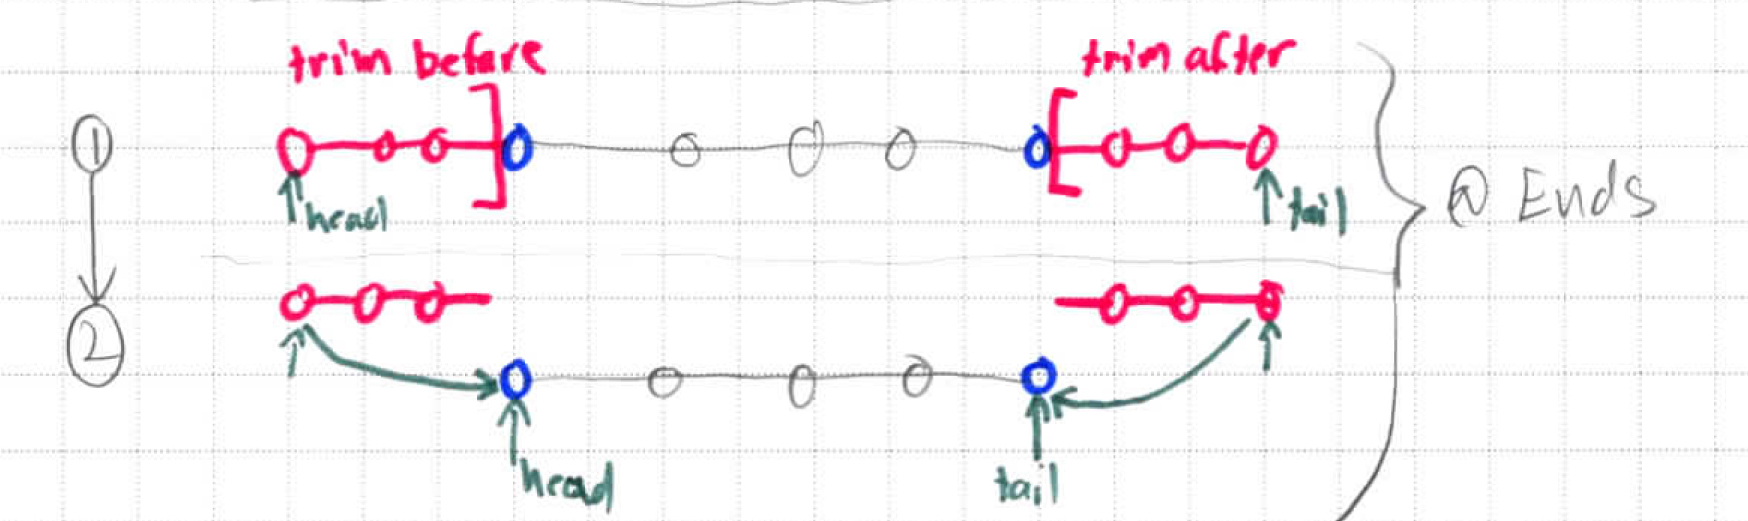 trim before trim after
1
head tail
@ Ends
2
head tail